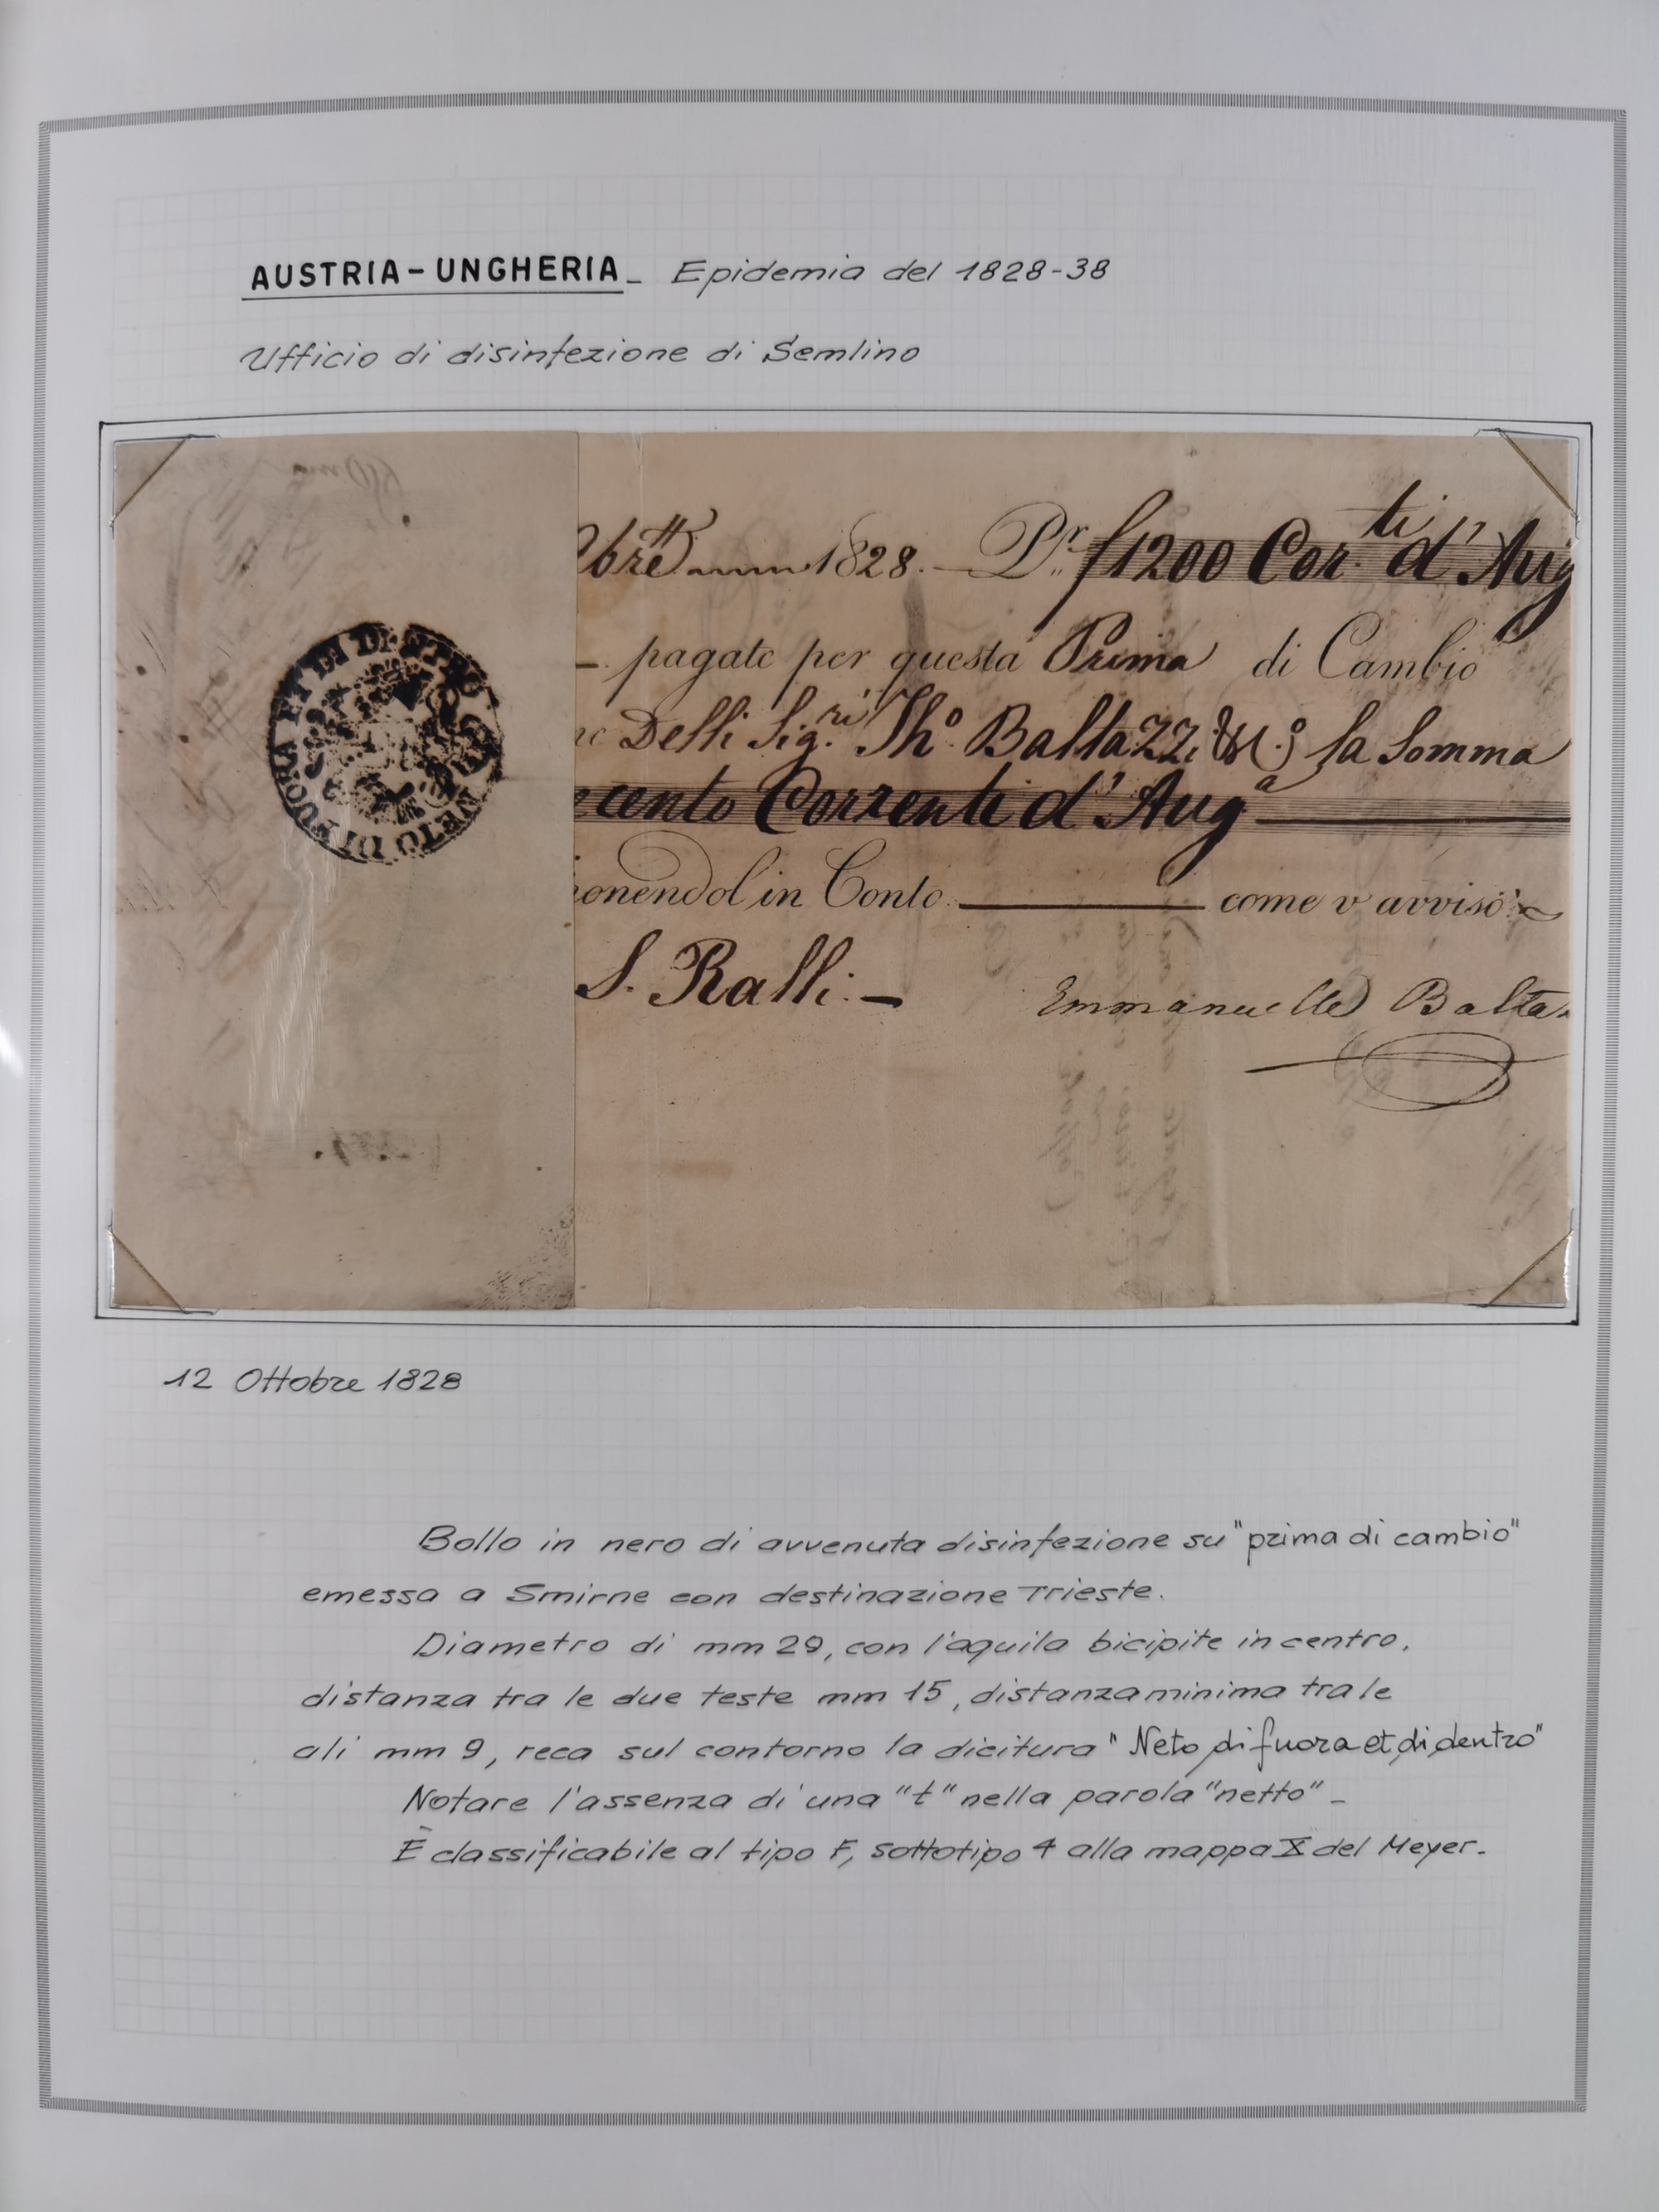 AUSTRIA-UNGHERIA_ Epidemia del 1828-38
Ufficio di disinfezione di Semlino
NETO DI FUORA ET DI DENTRO
bre 1828. Pr. f1200 Cor.ti d'Aug
pagate per questa Prima di Cambio
Delli Sig.ri Tho. Baltazzi & C.o la Somma
ecento Correnti d'Aug.a
onendol in Conto come v avviso
S. Ralli.
Emmanuelle Balta
12 Ottobre 1828
Bollo in nero di avvenuta disinfezione su "prima di cambio"
emessa a Smirne con destinazione Trieste.
Diametro di mm 29, con l'aquila bicipite in centro,
distanza tra le due teste mm 15, distanza minima tra le
ali mm 9, reca sul contorno la dicitura "Neto di fuora et di dentro"
Notare l'assenza di una "t" nella parola "netto" -
È classificabile al tipo F, sottotipo 4 alla mappa X del Meyer.